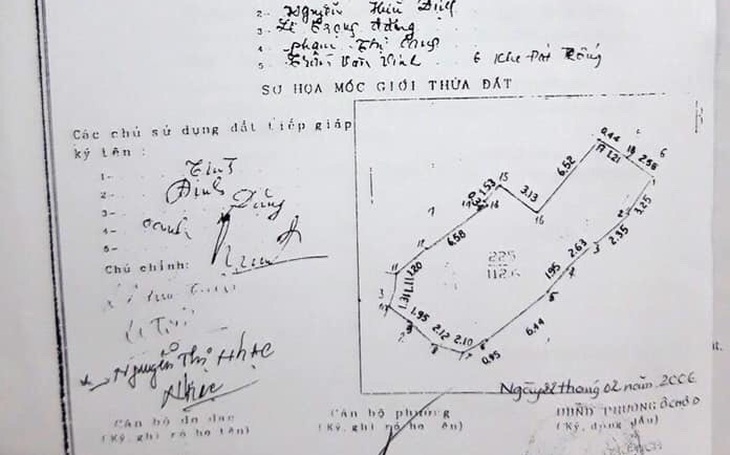 2- Nguyễn Hữu Diệp
3- Lê Trọng Đáng
4- Phạm Thị Cang
5- Trần Văn Vinh 6 Khu Đất Trống
SƠ HỌA MỐC GIỚI THỬA ĐẤT
Các chủ sử dụng đất tiếp giáp
ký tên :
1-
2-
3-
4-
5-
Chủ chính:
Nguyễn Thị Nhạc
Nhạc
Cán bộ đo đạc
(Ký, ghi rõ họ tên)
Cán bộ phường
(Ký, ghi rõ họ tên)
Ngày 22 tháng 02 năm 2006
UBND PHƯỜNG Ô CHỢ D
(Ký, đóng dấu)
0.44
17 1.21 18 2.56 6
6.52
15
1.53
3.13
16
14
1
6.58
2
3.25
2.35
3
2.63
4
1.95
5
225
112.6
12
11
1.20
1.11
1.31
3
10
1.95
9
2.12
8
2.10
7
0.95
6
6.44